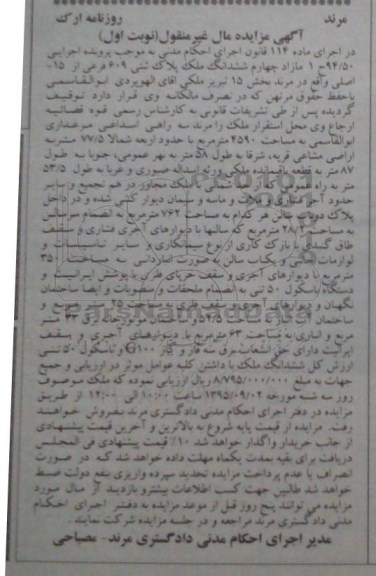 مرند روزنامه ارک
آگهی مزایده مال غیرمنقول(نوبت اول)
در اجرای ماده ۱۱۴ قانون اجرای احکام مدنی به موجب پرونده اجرایی
اصلی واقع در مرند بخش ۱۵ تبریز ملکی آقای الهویردی ابوالقاسمی
باحفظ حقوق مرتهن که در تصرف مالکانه وی قرار دارد توقیف
گردیده پس از طی تشریفات قانونی به کارشناس رسمی قوه قضائیه
ارجاع وی محل استقرار ملک را مرند سه راهی
ابوالقاسمی به مساحت ۴۵۹۰ مترمربع با حدود اربعه شمالا ۷۷/۵ متر به
اراضی مشاعی قریه، شرقا به طول ۵۸ متر به نهر عمومی، جنوبا به طول
۸۷ متر به قطعه باقیمانده ملکی ورثه اسداله صبوری و غربا به طول ۵۳/۵
متر به راه عمومی که از قسمت ملک مجاور در هم تجمیع و سایر
حدود آجر فشاری و ملات و ماسه و سیمان دیوار کشی شده و در داخل
پلاک دوباب سالن هر کدام به مساحت ۷۶۲ مترمربع به انضمام سرسالن
به مساحت ۲۸/۲ مترمربع که سالنها با دیوارهای آجری فشاری و سقف
طاق گنبدی با نازک کاری از نوع سیمانکاری و سایر تاسیسات و
لوازمات و یکباب سالن به صورت انباردانی به مساحت ۳۵۰
مترمربع با دیوارهای آجری و سقف خرپای فلزی با پوشش ایرانیت و
دستگاه باسکول ۵۰ تنی به انضمام ملحقات و منصوبات و ایضا ساختمان
نگهبان و دیوارهای آجری و سقف فلزی به مساحت ۲۵ متر مربع و
مربع و انباری به مساحت ۶۳ مترمربع با دیوارهای آجری و سقف
ایرانیت دارای حق انشعاب برق سه فاز و گاز G۱۰۰ و باسکول ۵۰ تنی
ارزش کل ششدانگ ملک با داشتن کلیه عوامل موثر در ارزیابی و جمع
جهات به مبلغ ۸/۷۹۵/۰۰۰/۰۰۰ ریال ارزیابی نموده که ملک موصوف
روز سه شنبه مورخه ۱۳۹۵/۰۹/۰۲ ساعت ۱۰:۰۰ الی ۱۲:۰۰ از طریق
مزایده در دفتر اجرای احکام مدنی دادگستری مرند بفروش خواهند
رفت. مزایده از قیمت پایه شروع به بالاترین و آخرین قیمت پیشنهادی
از جانب خریدار واگذار خواهد شد ۱۰٪ قیمت پیشنهادی فی المجلس
دریافت برای بقیه بمدت یکماه مهلت داده خواهد شد که در صورت
انصراف یا عدم پرداخت مزایده تجدید سپرده واریزی بنفع دولت ضبط
خواهد شد طالبین جهت کسب اطلاعات بیشتر و بازدید از مال مورد
مزایده می توانند پنج روز قبل از موعد مزایده به دفتر اجرای احکام
مدنی دادگستری مرند مراجعه و در جلسه مزایده شرکت نمایند.
مدیر اجرای احکام مدنی دادگستری مرند- مصباحی